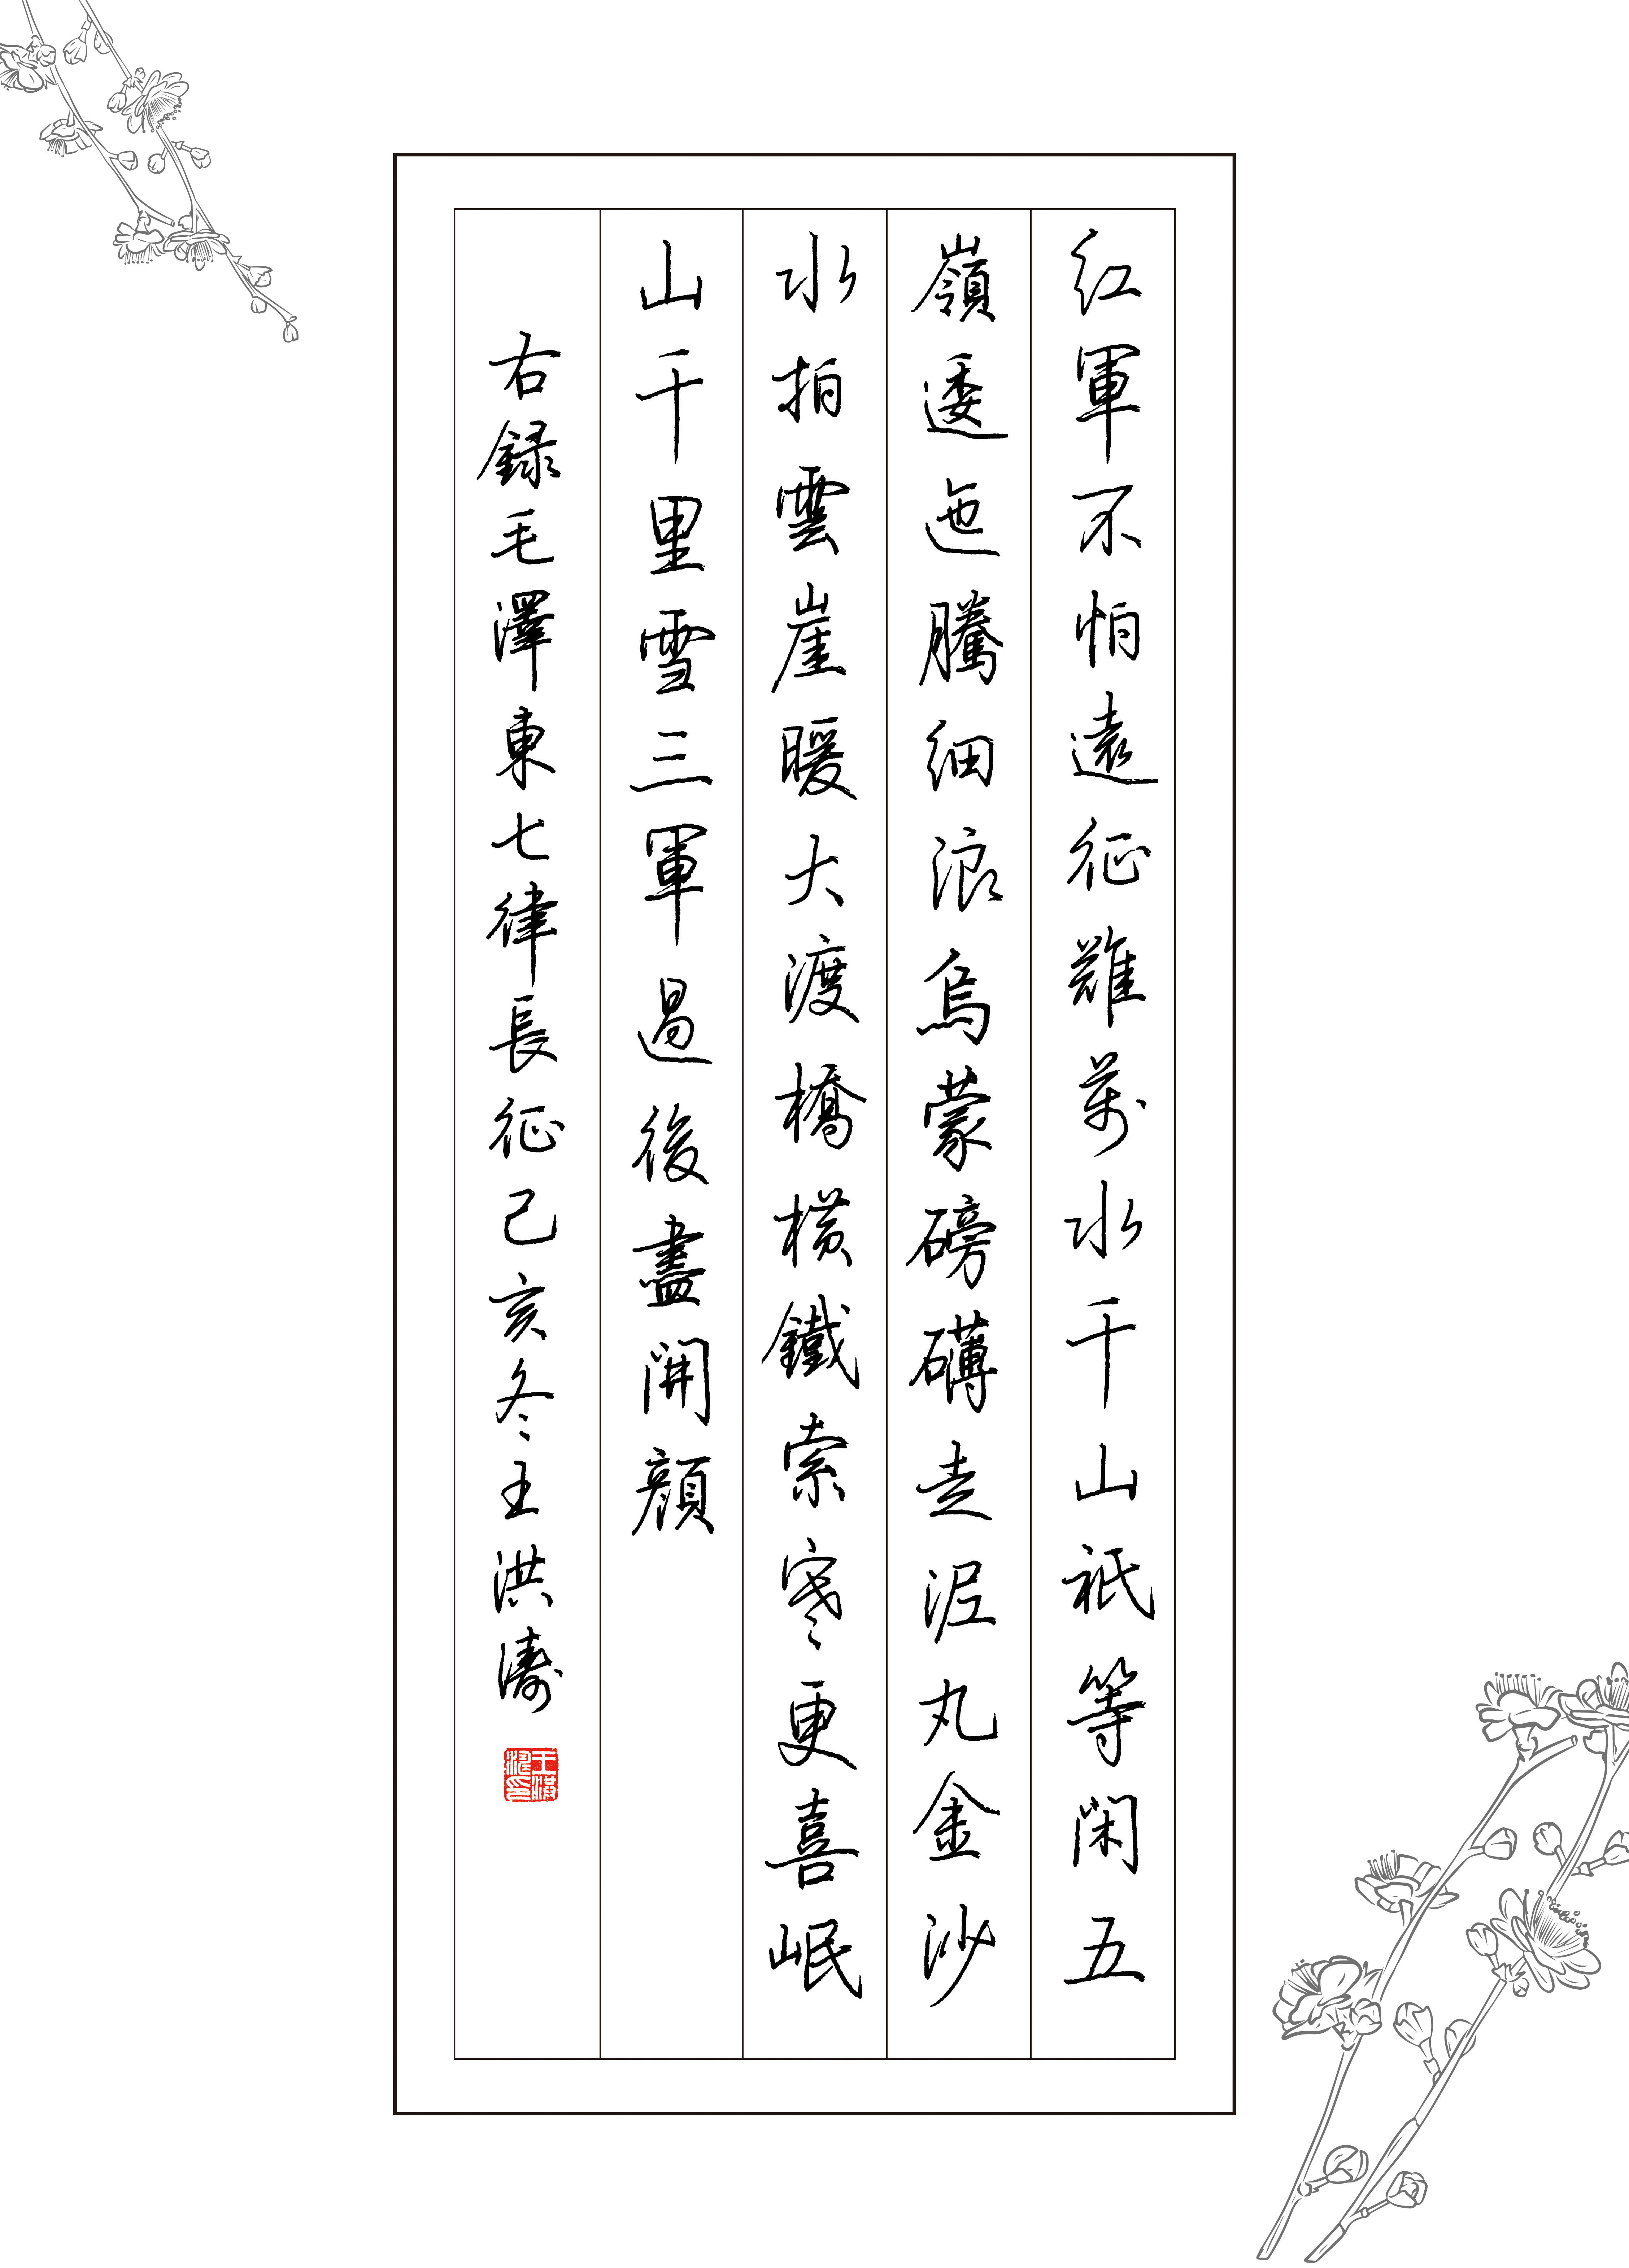 紅軍不怕遠征難萬水千山祇等閑五
嶺逶迤騰細浪烏蒙磅礴走泥丸金沙
水拍雲崖暖大渡橋橫鐵索寒更喜岷
山千里雪三軍過後盡開顏
右録毛澤東七律長征己亥冬王洪濤
王洪濤印